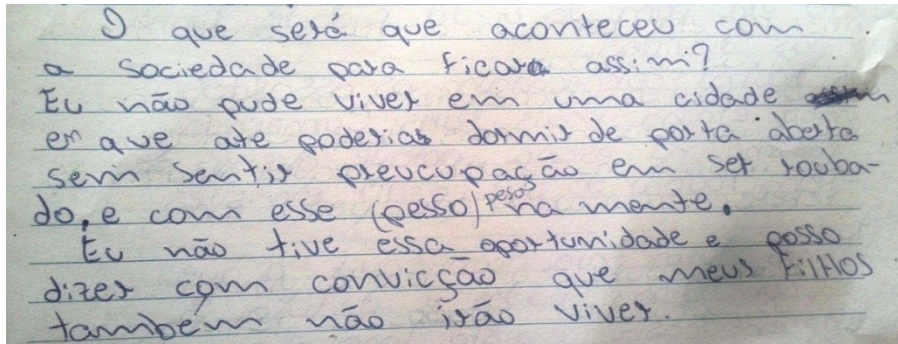 O que será que aconteceu com
a sociedade para ficara assim?
Eu não pude viver em uma cidade
em que ate poderias dormir de porta aberta
sem sentir preucupação em ser rouba-
do, e com esse (pesso) peso na mente.
Eu não tive essa oportunidade e posso
dizer com convicção que meus FilHos
também não irão viver.